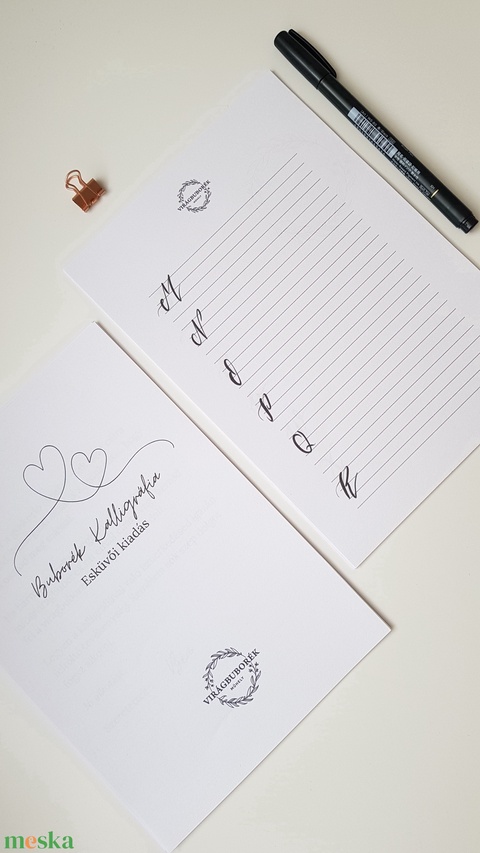 VIRÁGBUBORÉK
MŰHELY
M
N
O
P
Q
R
Buborék Kalligráfia
Esküvői kiadás
VIRÁGBUBORÉK
MŰHELY
meska